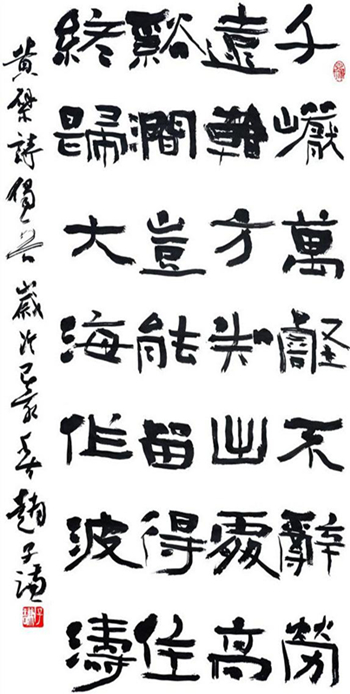 千巗萬壑不辭勞
遠看方知出處高
谿澗豈能留得住
終歸大海作波濤
黃檗詩偈一首歲次己亥趙子